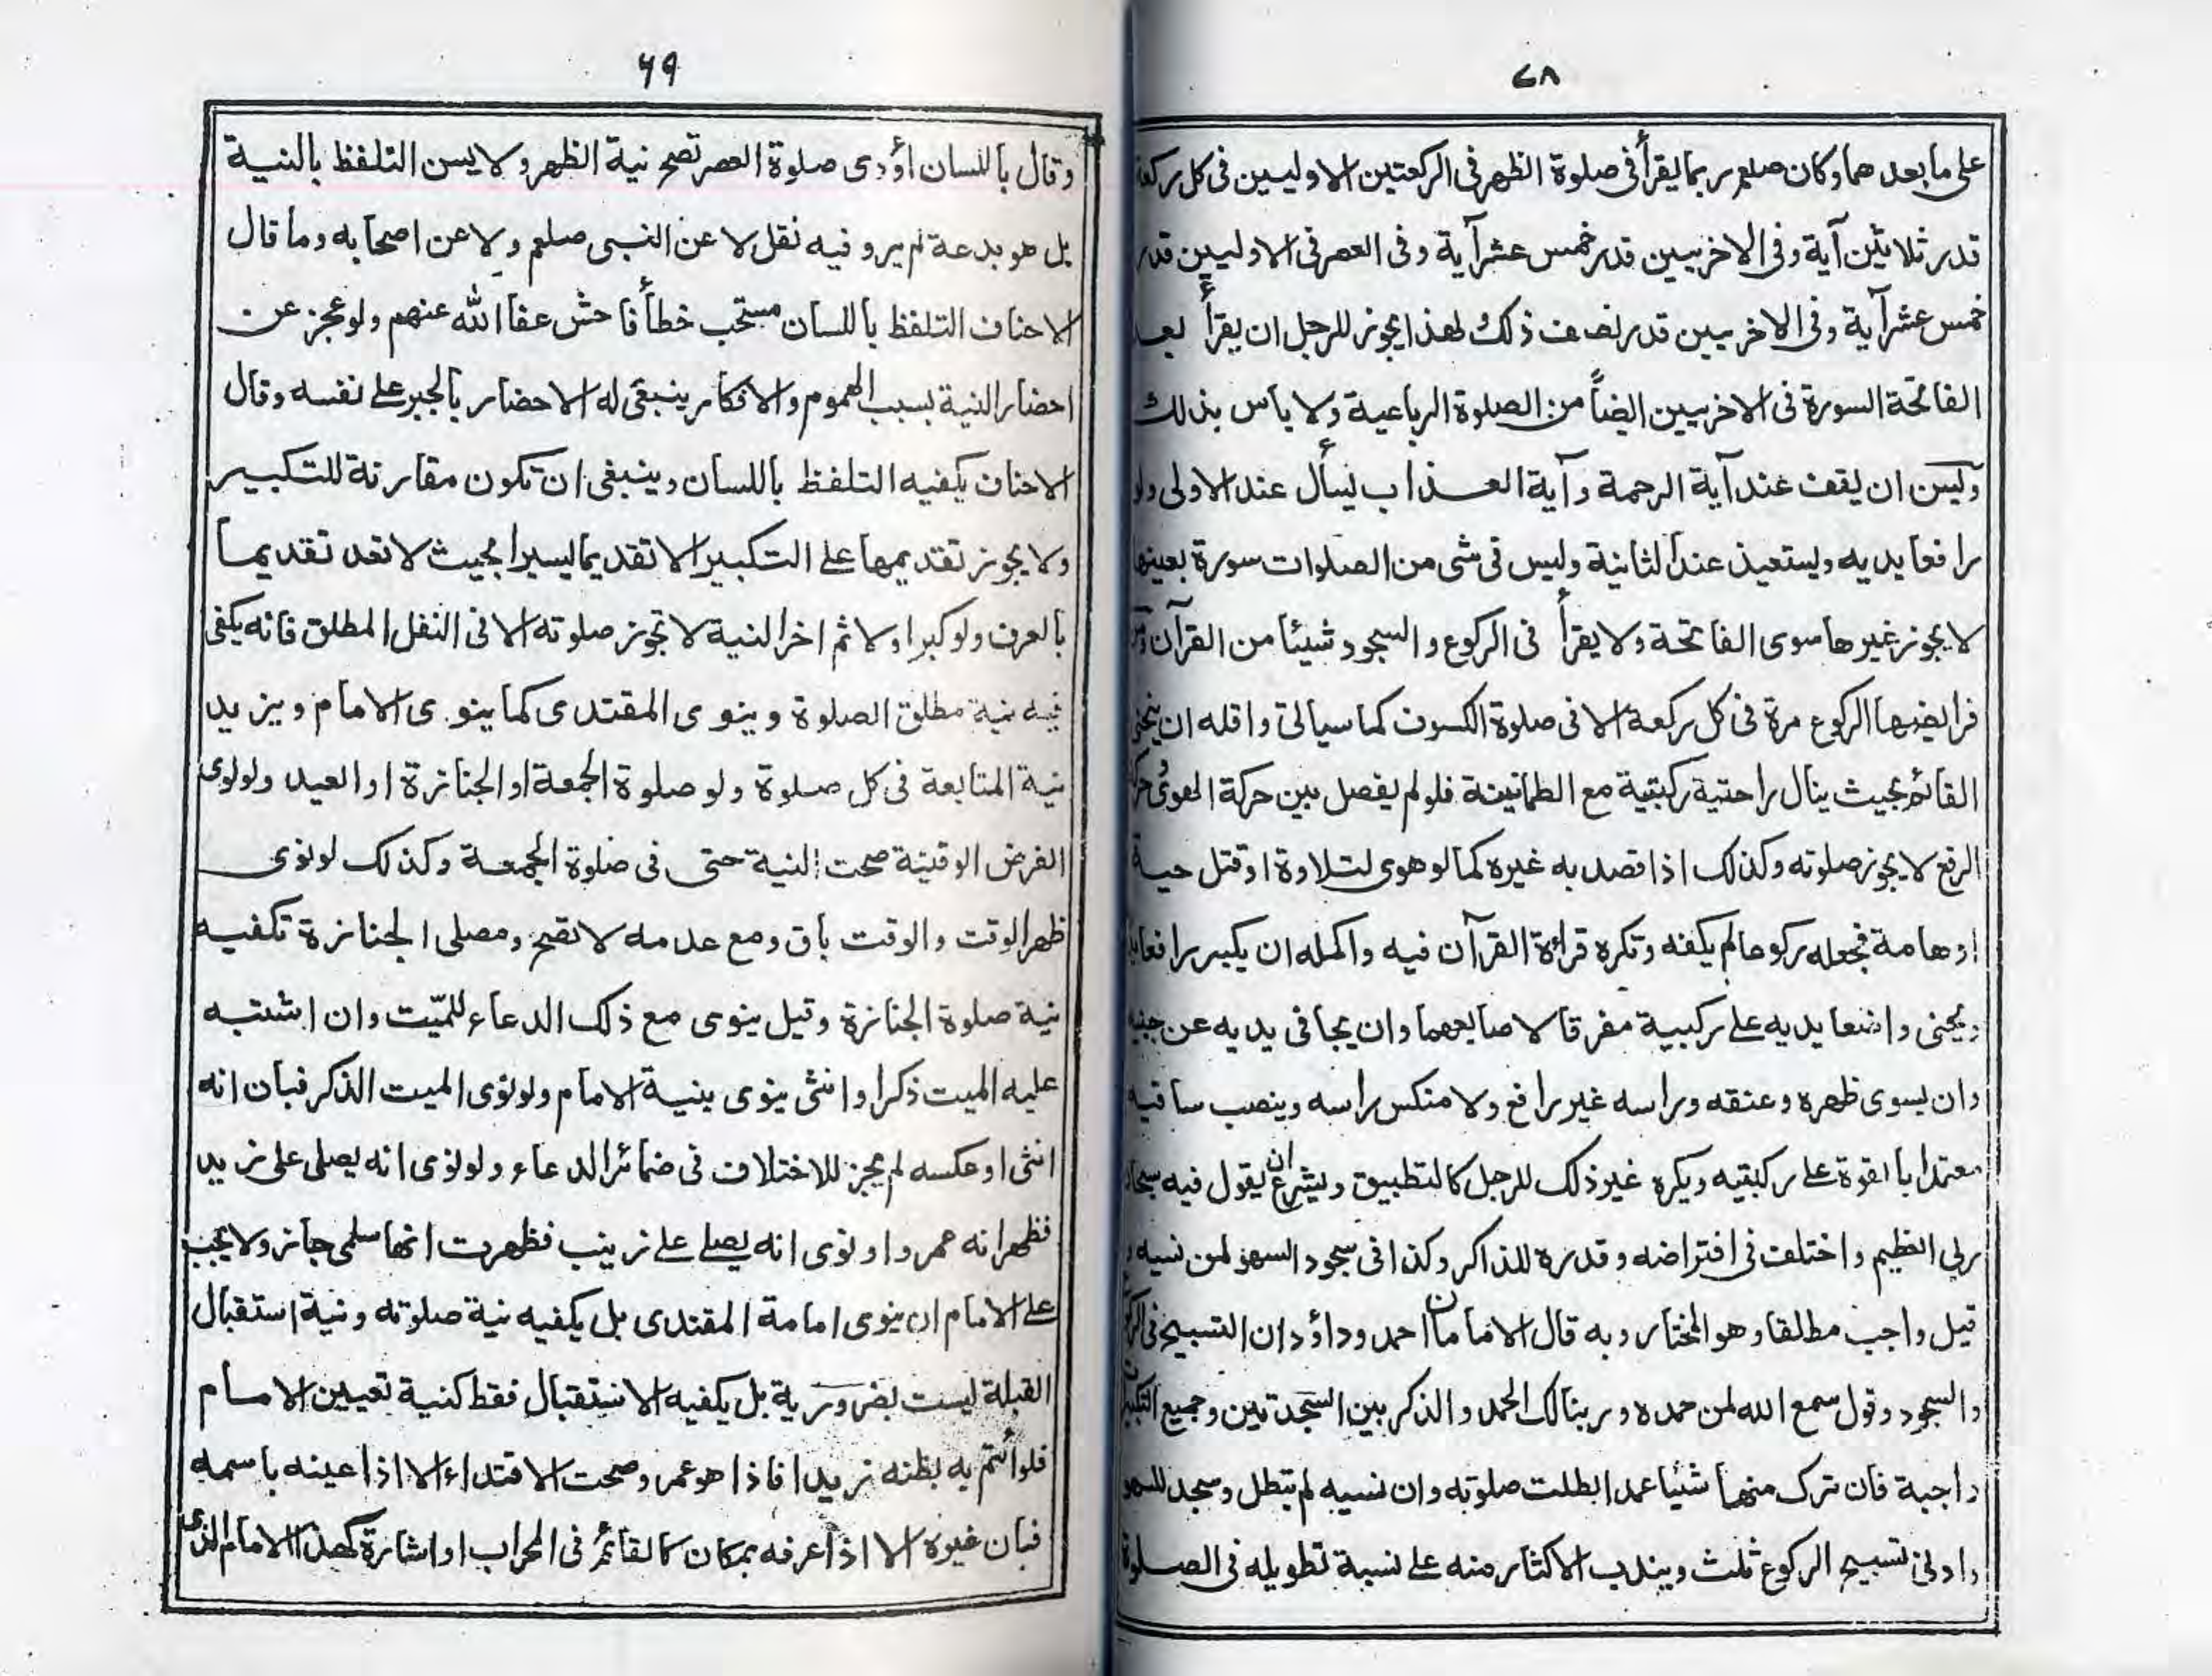 ٧٨
على ما بعد هما وكان صلعم ربما يقرأ فى صلوة الظهر فى الركعتين الاوليين فى كل ركعة
قدر ثلاثين آية وفى الاخريين قدر خمس عشر آية وفى العصر فى الاوليين قدر
خمس عشر آية وفى الاخريين قدر نصف ذلك لهذا يجوز للرجل ان يقرأ بعد
الفاتحة السورة فى الاخريين ايضاً من الصلوة الرباعية ولا بأس بذلك
وليسن ان يقف عند آية الرحمة وآية العذاب يسأل عند الاولى ولو
رافعا يديه ويستعيذ عند الثانية وليس فى شى من الصلوات سورة بعينها
لا يجوز غيرها سوى الفاتحة ولا يقرأ فى الركوع والسجود شيئا من القرآن
فرائضها الركوع مرة فى كل ركعة الا فى صلوة الكسوف كما سيأتى واقله ان ينحنى
القائم بحيث ينال راحتيه ركبتيه مع الطمانينة فلو لم يفصل بين حركة الهوى
الرفع لا يجوز صلوته وكذلك اذا قصد به غيره كما لو هوى لتلاوة او قتل حية
او هامة فجعله ركوعا لم يكفه وتكره قراءة القرآن فيه واكمله ان يكبر رافعا
ويحنى واضعا يديه على ركبتيه مفرقا لاصابعهما وان يجافى يديه عن جنبيه
وان يسوى ظهره وعنقه وراسه غير رافع ولا منكس راسه وينصب ساقيه
معتمدا بالقوة على ركبتيه ويكره غير ذلك للرجل كالتطبيق ويشرع ان يقول فيه سبحان
ربى العظيم واختلف فى افتراضه وقدره للذاكر وكذا فى سجود السهو لمن نسيه
قيل واجب مطلقا وهو المختار وبه قال الامامان احمد وداؤد ان التسبيح فى
والسجود وقول سمع الله لمن حمده وربنا لك الحمد والذكر بين السجدتين وجميع
واجبة فان ترك منها شيئا عمدا بطلت صلوته وان نسيه لم تبطل وسجد للسهو
وادنى تسبيح الركوع ثلث ويندب الاكثار منه على نسبة تطويله فى الصلوة
٦٩
وقال باللسان اؤدى صلوة العصر تصح نية الظهر ولا يسن التلفظ بالنية
بل هو بدعة لم يرو فيه نقل لا عن النبى صلعم ولا عن اصحابه وما قال
الاحناف التلفظ باللسان مستحب خطأ فاحش عفا الله عنهم ولو عجز عن
احضار النية بسبب الهموم والافكار ينبغى له الاحضار بالجبر على نفسه وقال
الاحناف يكفيه التلفظ باللسان وينبغى ان تكون مقارنة للتكبير
ولا يجوز تقديمها على التكبير الا تقديما يسيرا بحيث لا تعد تقديما
بالعرف ولو كبر اولا ثم اخر النية لا تجوز صلوته الا فى النفل المطلق فانه يكفى
فيه نية مطلق الصلوة وينوى المقتدى كما ينوى الامام ويزيد
نية المتابعة فى كل صلوة ولو صلوة الجمعة او الجنازة او العيد ولو نوى
الفرض الوقتية صحت النية حتى فى صلوة الجمعة وكذلك لو نوى
ظهر الوقت والوقت باق ومع عدمه لا تصح ومصلى الجنازة تكفيه
نية صلوة الجنازة وقيل ينوى مع ذلك الدعاء للميّت وان اشتبه
عليه الميت ذكرا وانثى ينوى بنية الامام ولو نوى الميت الذكر فبان انه
انثى او عكسه لم يجز للاختلاف فى ضمائر الدعاء ولو نوى انه يصلى على زيد
فظهر انه عمر واو نوى انه يصلى على زينب فظهرت انها سلمى جاز ولا يجب
على الامام ان ينوى امامة المقتدى بل يكفيه نية صلوته ونية استقبال
القبلة ليست بضرورية بل يكفيه الاستقبال فقط كنية تعيين الامام
فلو أتم به بظنه زيدا فاذا هو عمر وصحت الاقتداء الا اذا عينه باسمه
فبان غيره الا اذا عرفه بمكان كالقائم فى المحراب او اشارة كهذا الامام الذى